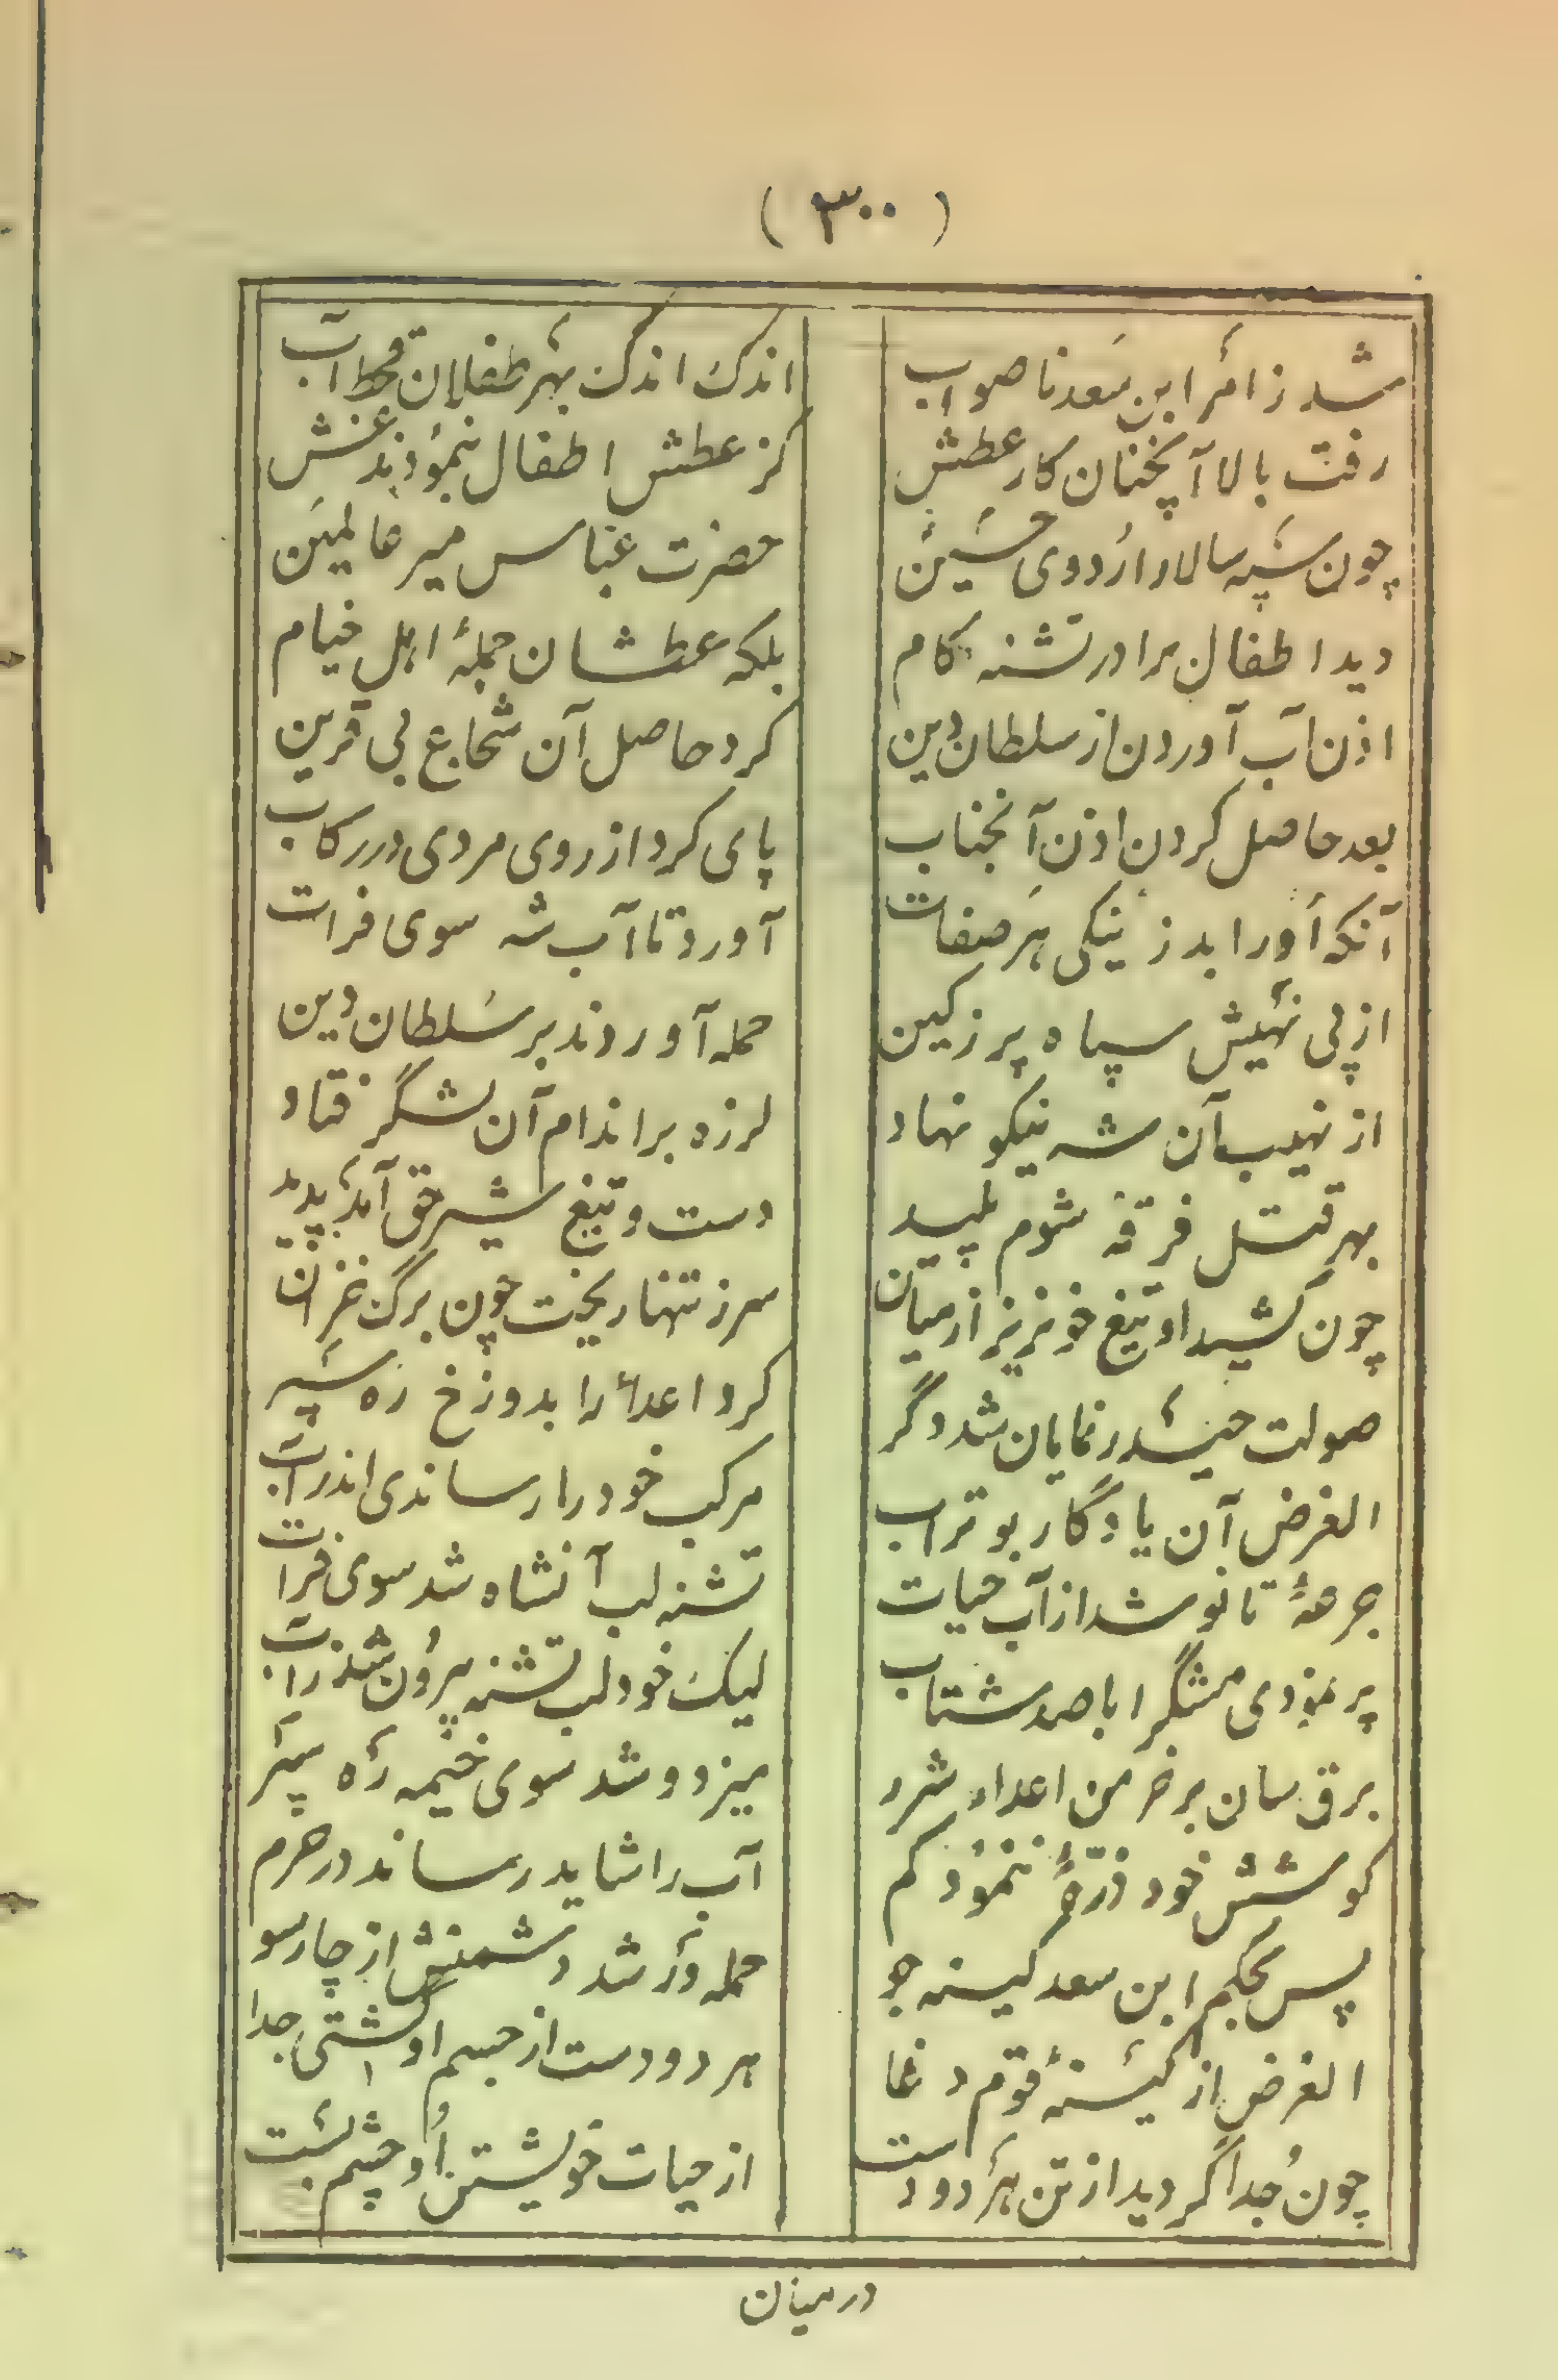 ( ۳۰۰ )
شد ز امر ابن سعد ناصواب اندک اندک بهر طفلان قحط آب
رفت بالا آنچنان کار عطش کز عطش اطفال بنمودند غش
چون سپه سالار اردوی حسین حضرت عباس میر عالمین
دید اطفال برادر تشنه کام بلکه عطشان جملهٔ اهل خیام
اذن آب آوردن از سلطان دین کرد حاصل آن شجاع بی قرین
بعد حاصل کردن اذن آنجناب پای کرد از روی مردی در رکاب
آنکه او را بد ز نیکی هر صفات آورد تا آب شه سوی فرات
از پی نهیش سپاه پر ز کین حمله آوردند بر سلطان دین
از نهیب آن شه نیکو نهاد لرزه بر اندام آن لشگر فتاد
بهر قتل فرقه شوم پلید دست و تیغ شیر حق آمد پدید
چون کشید او تیغ خونریز از میان سر ز تنها ریخت چون برگ خزان
صولت حیدر نمایان شد دگر کرد اعدا را بدوزخ ره سپر
الغرض آن یادگار بوتراب مرکب خود را رساندی اندر آب
جرعهٔ تا نوشد از آب حیات تشنه لب آنشاه شد سوی فرات
پر نمودی مشگرا با صد شتاب لیک خود لب تشنه بیرون شد ز آب
برق سان بر خرمن اعداء شرر میزد و شد سوی خیمه ره سپر
کوشش خود ذرّهٔ ننمود کم آب را شاید رساند در حرم
پس بحکم ابن سعد کینه جو حمله ور شد دشمنش از چارسو
الغرض از کینهٔ قوم دغا هر دو دست از جسم او گشتی جدا
چون جدا گردید از تن هر دو دست از حیات خویشتن او چشم بست
درمیان